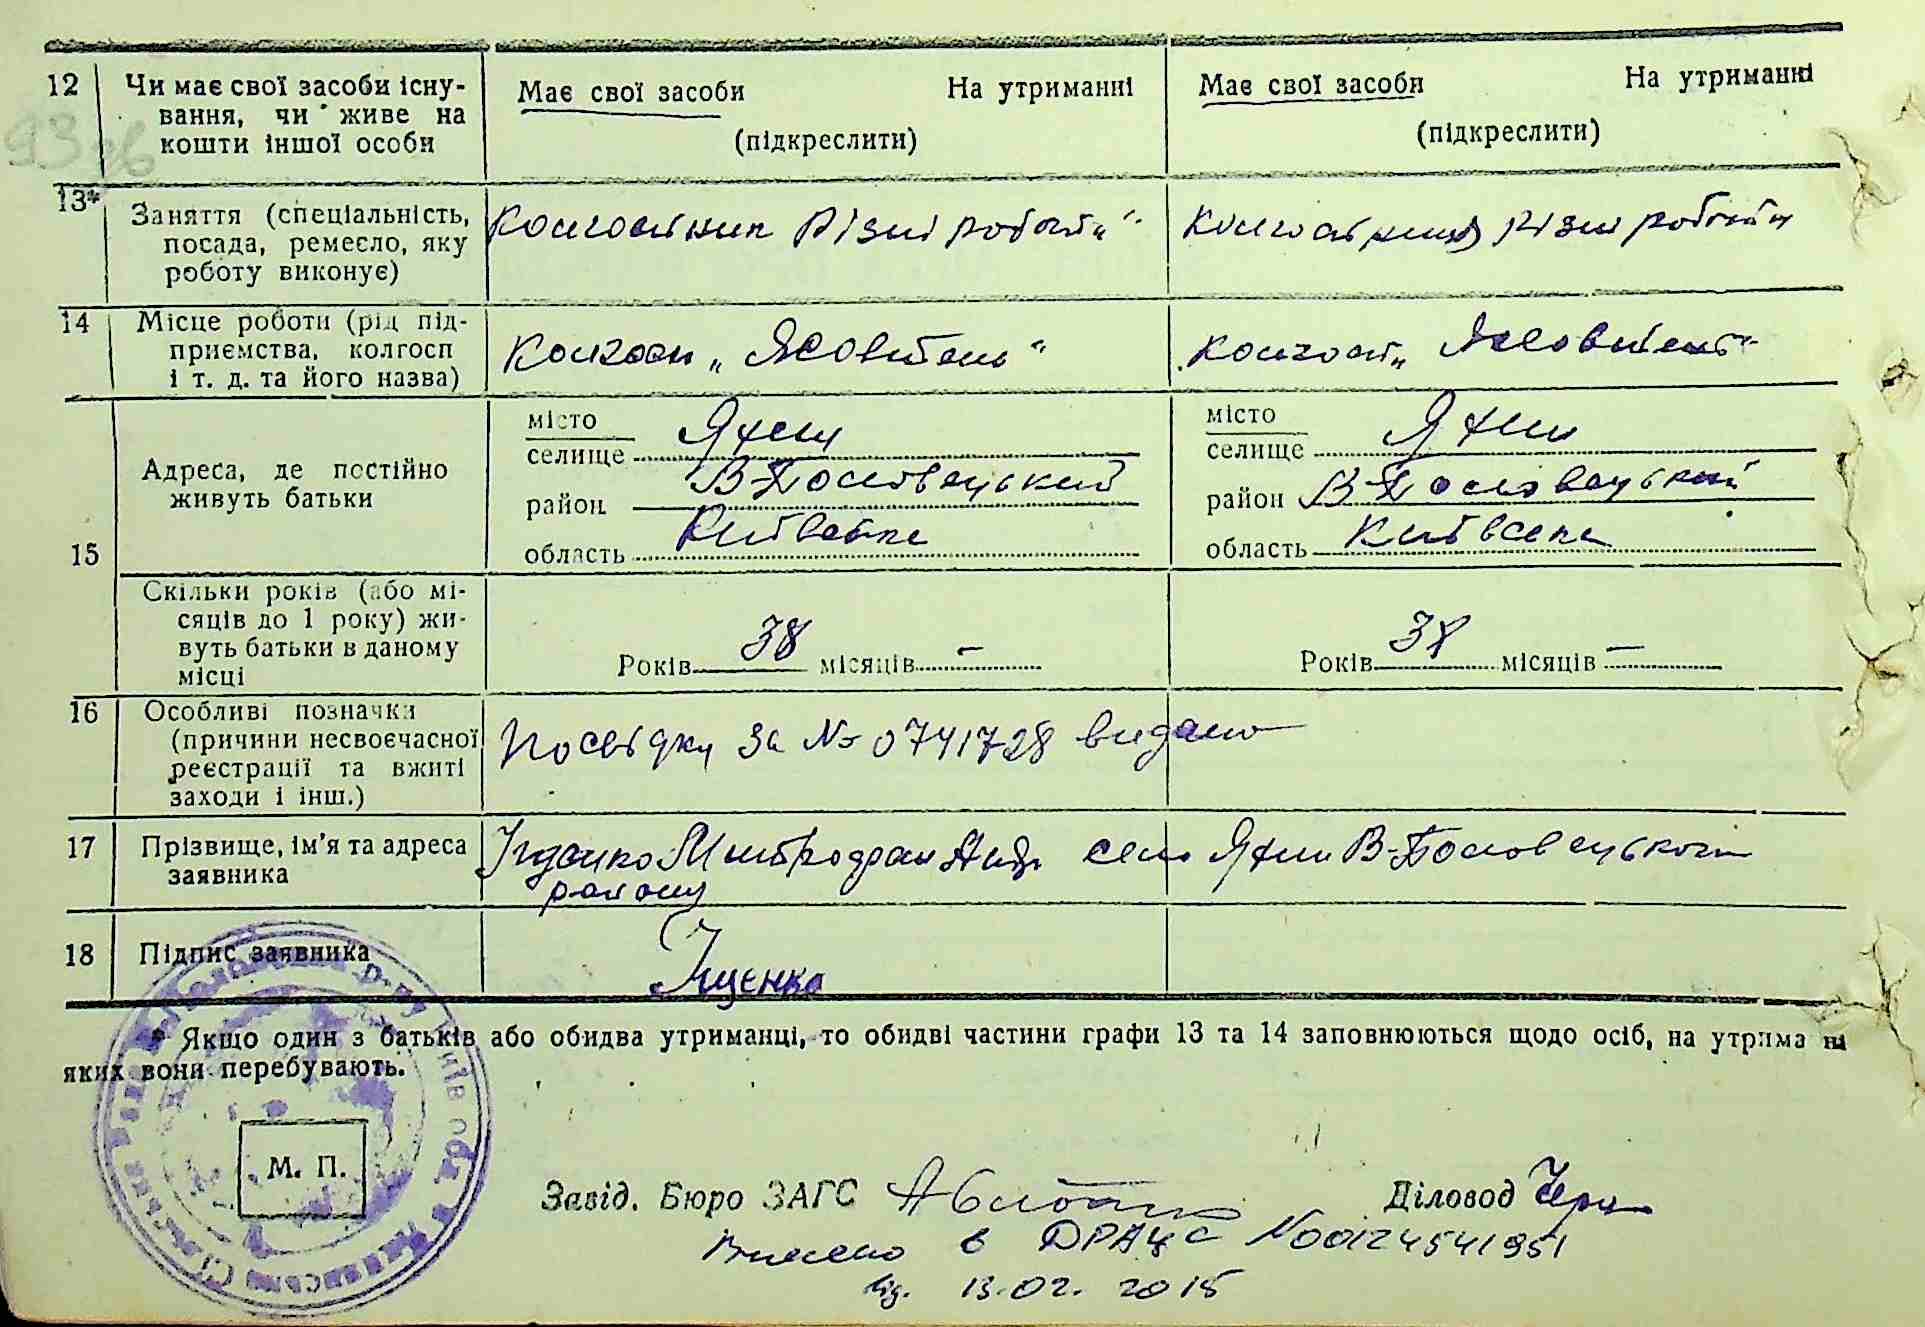 12 Чи має свої засоби існу-
вання, чи живе на
кошти іншої особи
Має свої засоби На утриманні
(підкреслити)
Має свої засоби На утриманні
(підкреслити)
13* Заняття (спеціальність,
посада, ремесло, яку
роботу виконує)
Колгоспник різні роботи
Колгоспниця різні роботи
14 Місце роботи (рід під-
приємства, колгосп
і т. д. та його назва)
Колгосп „Жовтень“
колгосп „Жовтень“
15 Адреса, де постійно
живуть батьки
місто
селище Яхни
район В-Половецький
область Київська
місто
селище Яхни
район В-Половецький
область Київська
Скільки років (або мі-
сяців до 1 року) жи-
вуть батьки в даному
місці
Років 38 місяців –
Років 38 місяців –
16 Особливі позначки
(причини несвоєчасної
реєстрації та вжиті
заходи і інш.)
Посвідку за № 0741728 видано
17 Прізвище, ім'я та адреса
заявника
Яценко Митрофан село Яхни В-Половецького
району
18 Підпис заявника
Яценко
* Якщо один з батьків або обидва утриманці, то обидві частини графи 13 та 14 заповнюються щодо осіб, на утрима н
яких вони перебувають.
М. П.
Завід. Бюро ЗАГС
Діловод
Внесено в ДРАЦС №00124541951
від. 13.02.2015